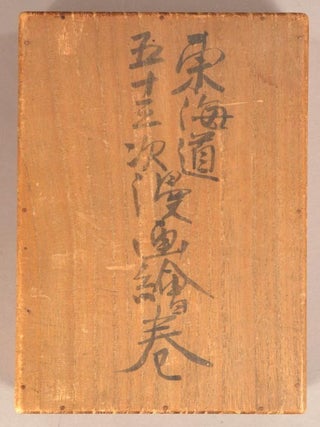 東海道
五十三次漫画繪卷